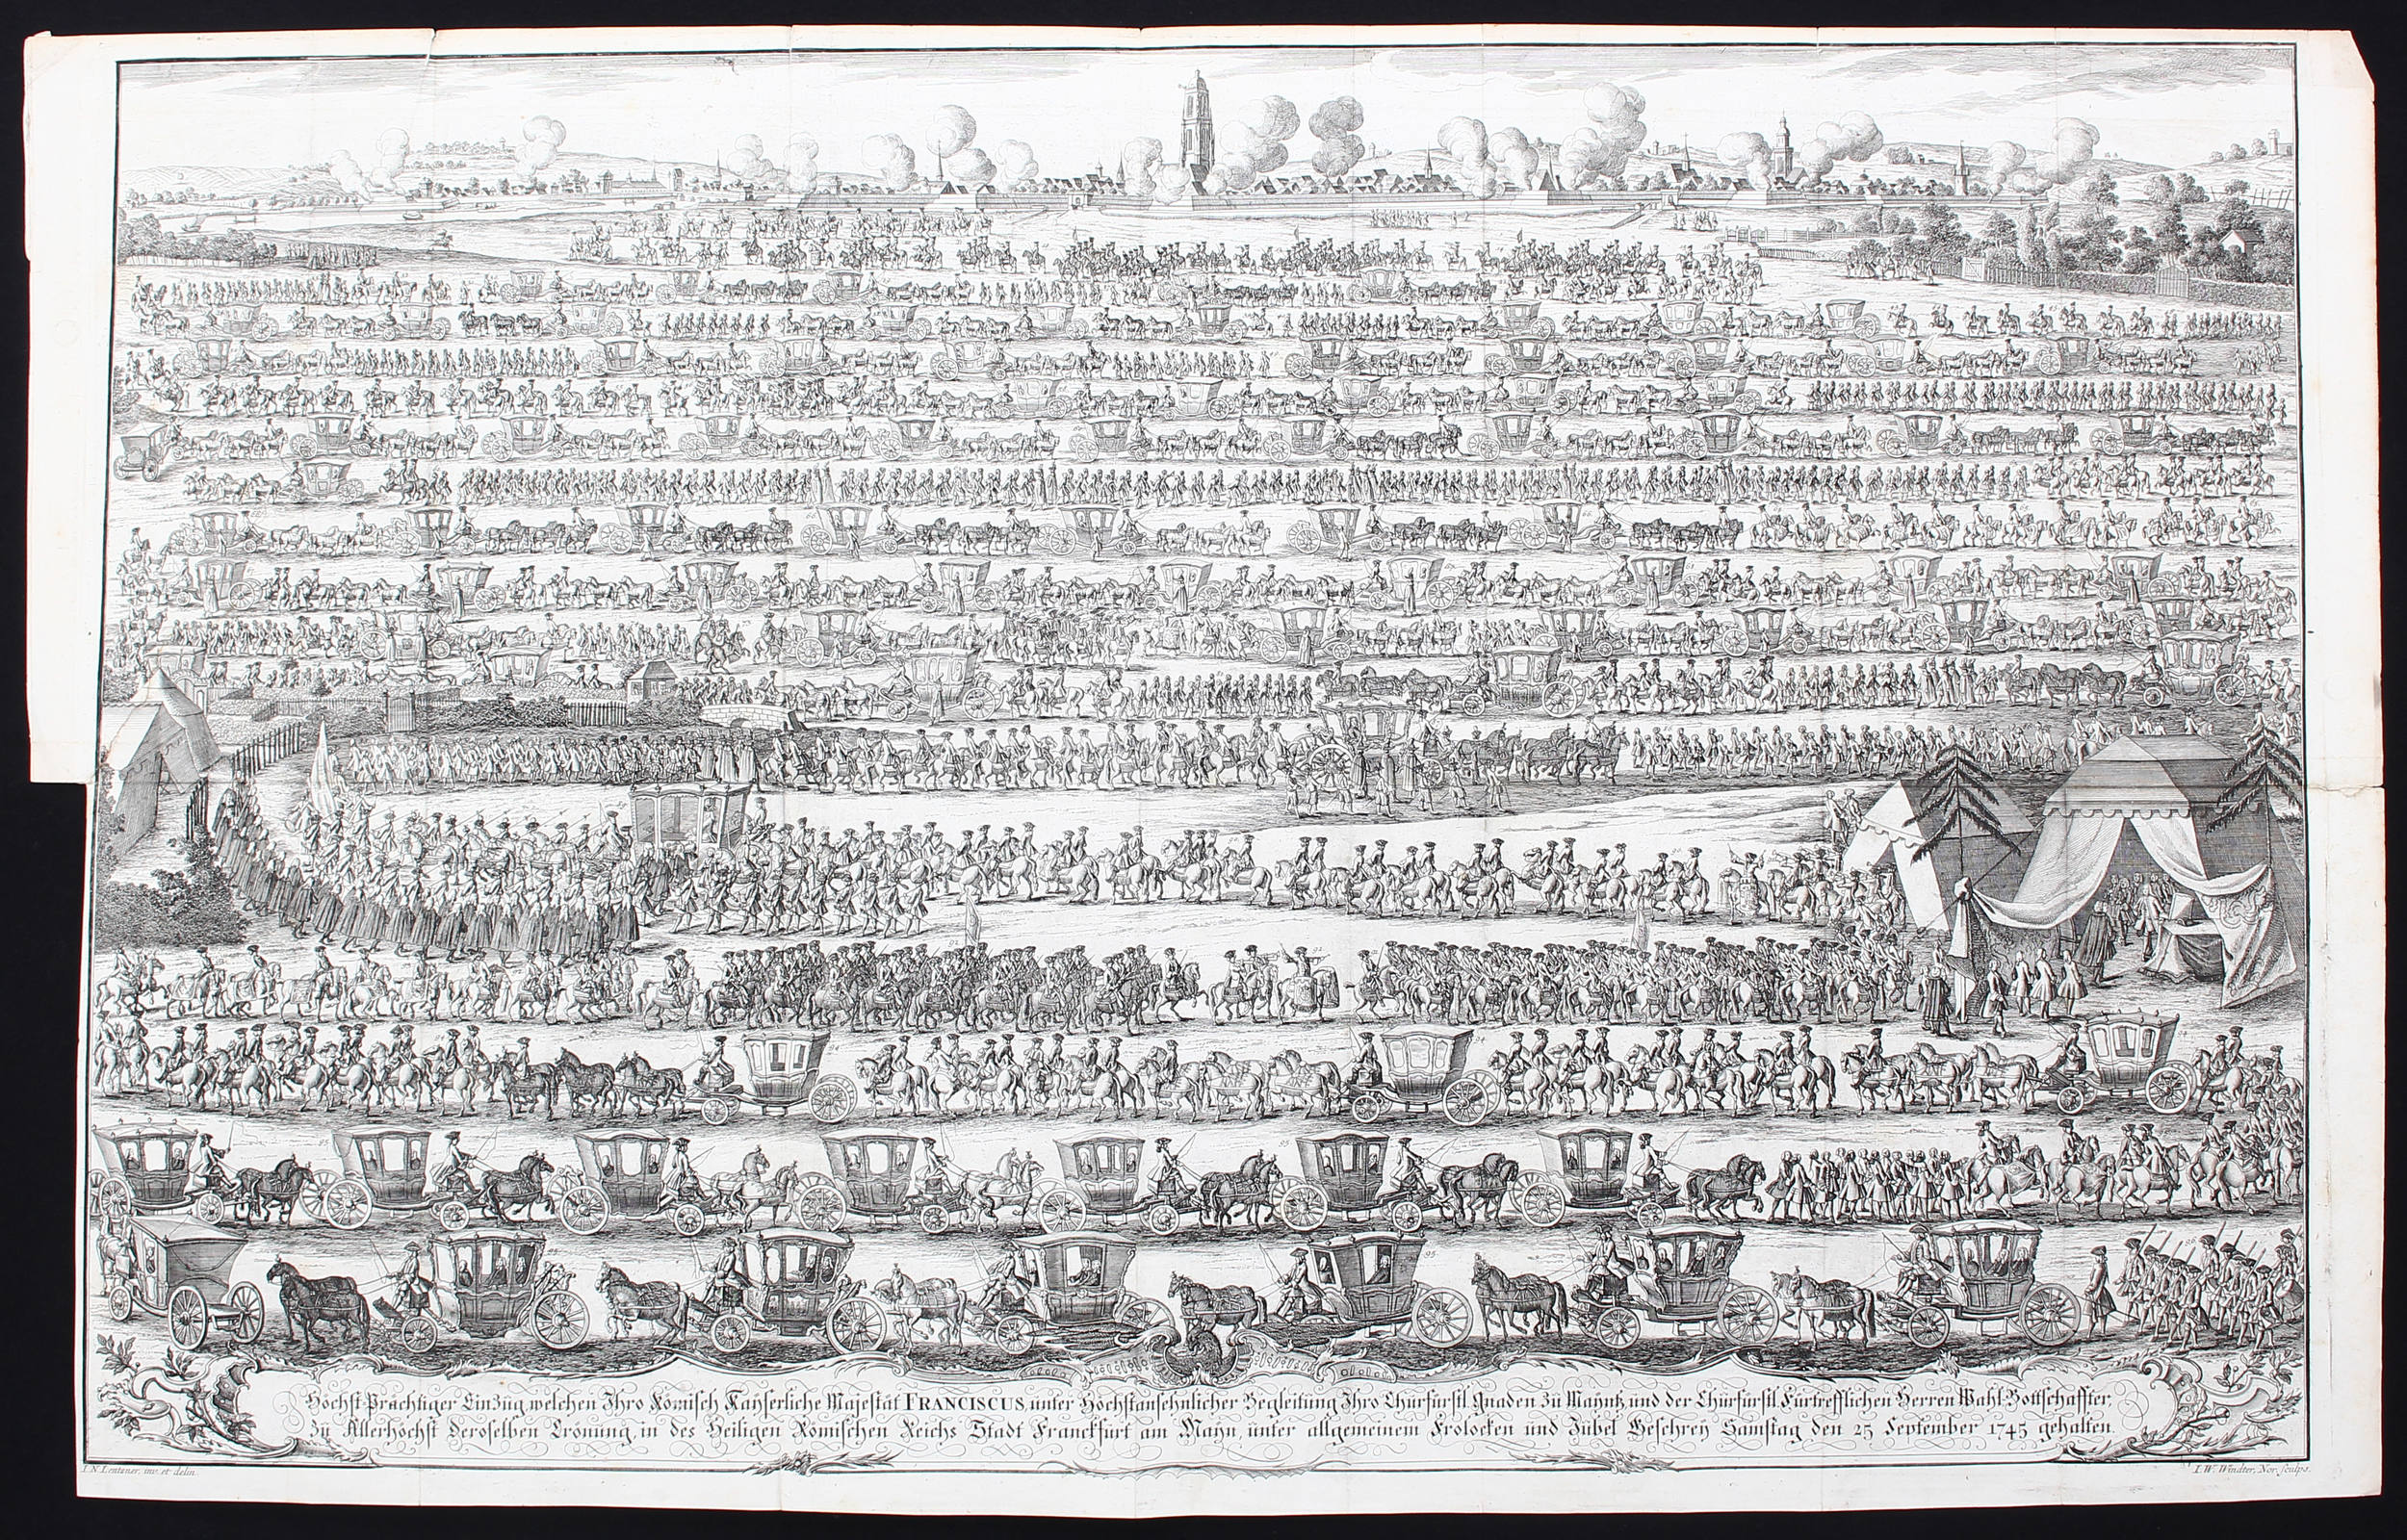 Höchst-Prächtiger Einzug, welchen Ihro Römisch Kayserliche Majestät FRANCISCUS, unter Höchstansehnlicher Begleitung Ihro Chürfürstl. Gnaden zü Mayntz, und der Chürfürstl. Fürtrefflichen Herren Wahl-Bottschaffter,
Zü Allerhöchst Deroselben Crönung, in des Heiligen Römischen Reichs Stadt Franckfürt am Mayn, ünter allgemeinem Frolocken und Jübel Geschrey Samstag den 25 September 1745 gehalten.
I. N. Lentzner, inv. et delin.
I. W. Windter, Nor. sculps.